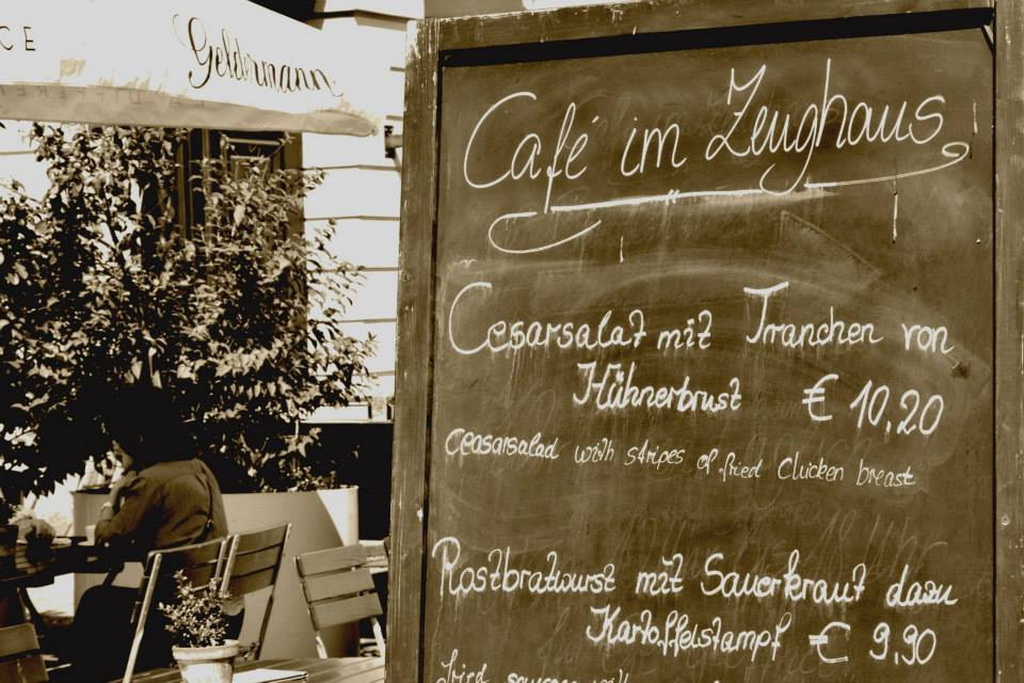 CE
Geldermann
Café im Zeughaus
Cesarsalat mit Tranchen von
Hühnerbrust € 10,20
Ceasarsalad with stripes of fried Clucken breast
Rostbratwurst mit Sauerkraut dazu
Kartoffelstampf € 9,90
fried